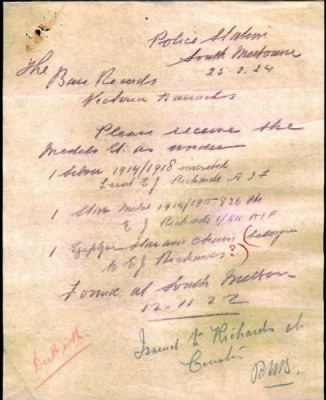 Police Station
South Melbourne
25.2.24
The
Base Records
Victoria Barracks
Please receive the
medals &c. as under
1 Silver 1914/1918 inscribed
E J Richards A I F
1 Star Medal 1914/1915 836
E J Richards A.I.F
1 Star and Chain (
to E J Richards?)
Found at South Melbourne
12.11.22
Issued to Richards at
Counter
Dealt with